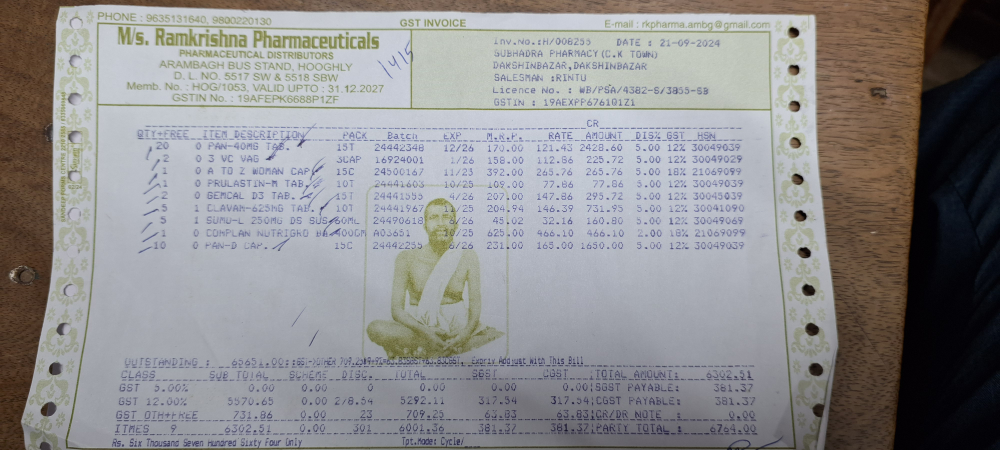 PHONE : 9635131640, 9800220130
GST INVOICE
E-mail : rkpharma.ambg@gmail.com
M/s. Ramkrishna Pharmaceuticals
PHARMACEUTICAL DISTRIBUTORS
ARAMBAGH BUS STAND, HOOGHLY
D. L. NO. 5517 SW & 5518 SBW
Memb. No. : HOG/1053, VALID UPTO : 31.12.2027
GSTIN No. : 19AFEPK6688P1ZF
1415
Inv.No.:H/008255 DATE : 21-09-2024
SUBHADRA PHARMACY(C.K TOWN)
DAKSHINBAZAR,DAKSHINBAZAR
SALESMAN :RINTU
Licence No. : WB/PSA/4382-S/3855-SB
GSTIN : 19AEXPP6761Q1Z1
CR
QTY+FREE ITEM DESCRIPTION PACK Batch EXP M.R.P. RATE AMOUNT DIS% GST HSN
20 0 PAN-40MG TAB. 15T 24442348 12/26 170.00 121.43 2428.60 5.00 12% 30049039
2 0 3 VC VAG 3CAP 16924001 1/26 158.00 112.86 225.72 5.00 12% 30049029
1 0 A TO Z WOMAN CAP 15C 24500167 11/25 392.00 265.76 265.76 5.00 18% 21069099
1 0 PROLASTIN-M TAB. 10T 24441603 10/25 109.00 77.86 77.86 5.00 12% 30049039
2 0 GEMCAL D3 TAB. 15T 24441555 4/26 207.00 147.86 295.72 5.00 12% 30045039
5 1 CLAVAM-625MG TAB. 10T 24441967 11/25 204.94 146.39 731.95 5.00 12% 30041090
5 1 SUMO-L 250MG DS SUS 60ML 24490618 6/26 45.02 32.16 160.80 5.00 12% 30049069
1 0 COMPLAN NUTRIGRO 400GM A03651 10/25 625.00 466.10 466.10 2.00 18% 21069099
10 0 PAN-D CAP. 15C 24442255 6/26 231.00 165.00 1650.00 5.00 12% 30049039
OUTSTANDING : 65651.00 Expriy Adojust With This Bill
CLASS SUB TOTAL SCHEME DISC. TOTAL SGST CGST TOTAL AMOUNT: 6302.51
GST 5.00% 0.00 0.00 0 0.00 0.00 0.00 SGST PAYABLE: 381.37
GST 12.00% 5570.65 0.00 278.54 5292.11 317.54 317.54 CGST PAYABLE: 381.37
GST OTH+FREE 731.86 0.00 23 709.25 63.83 63.83 CR/DR NOTE : 0.00
ITMES 9 6302.51 0.00 301 6001.36 381.37 381.37 PARTY TOTAL : 6764.00
Rs. Six Thousand Seven Hundred Sixty Four Only Tpt.Mode: Cycle/